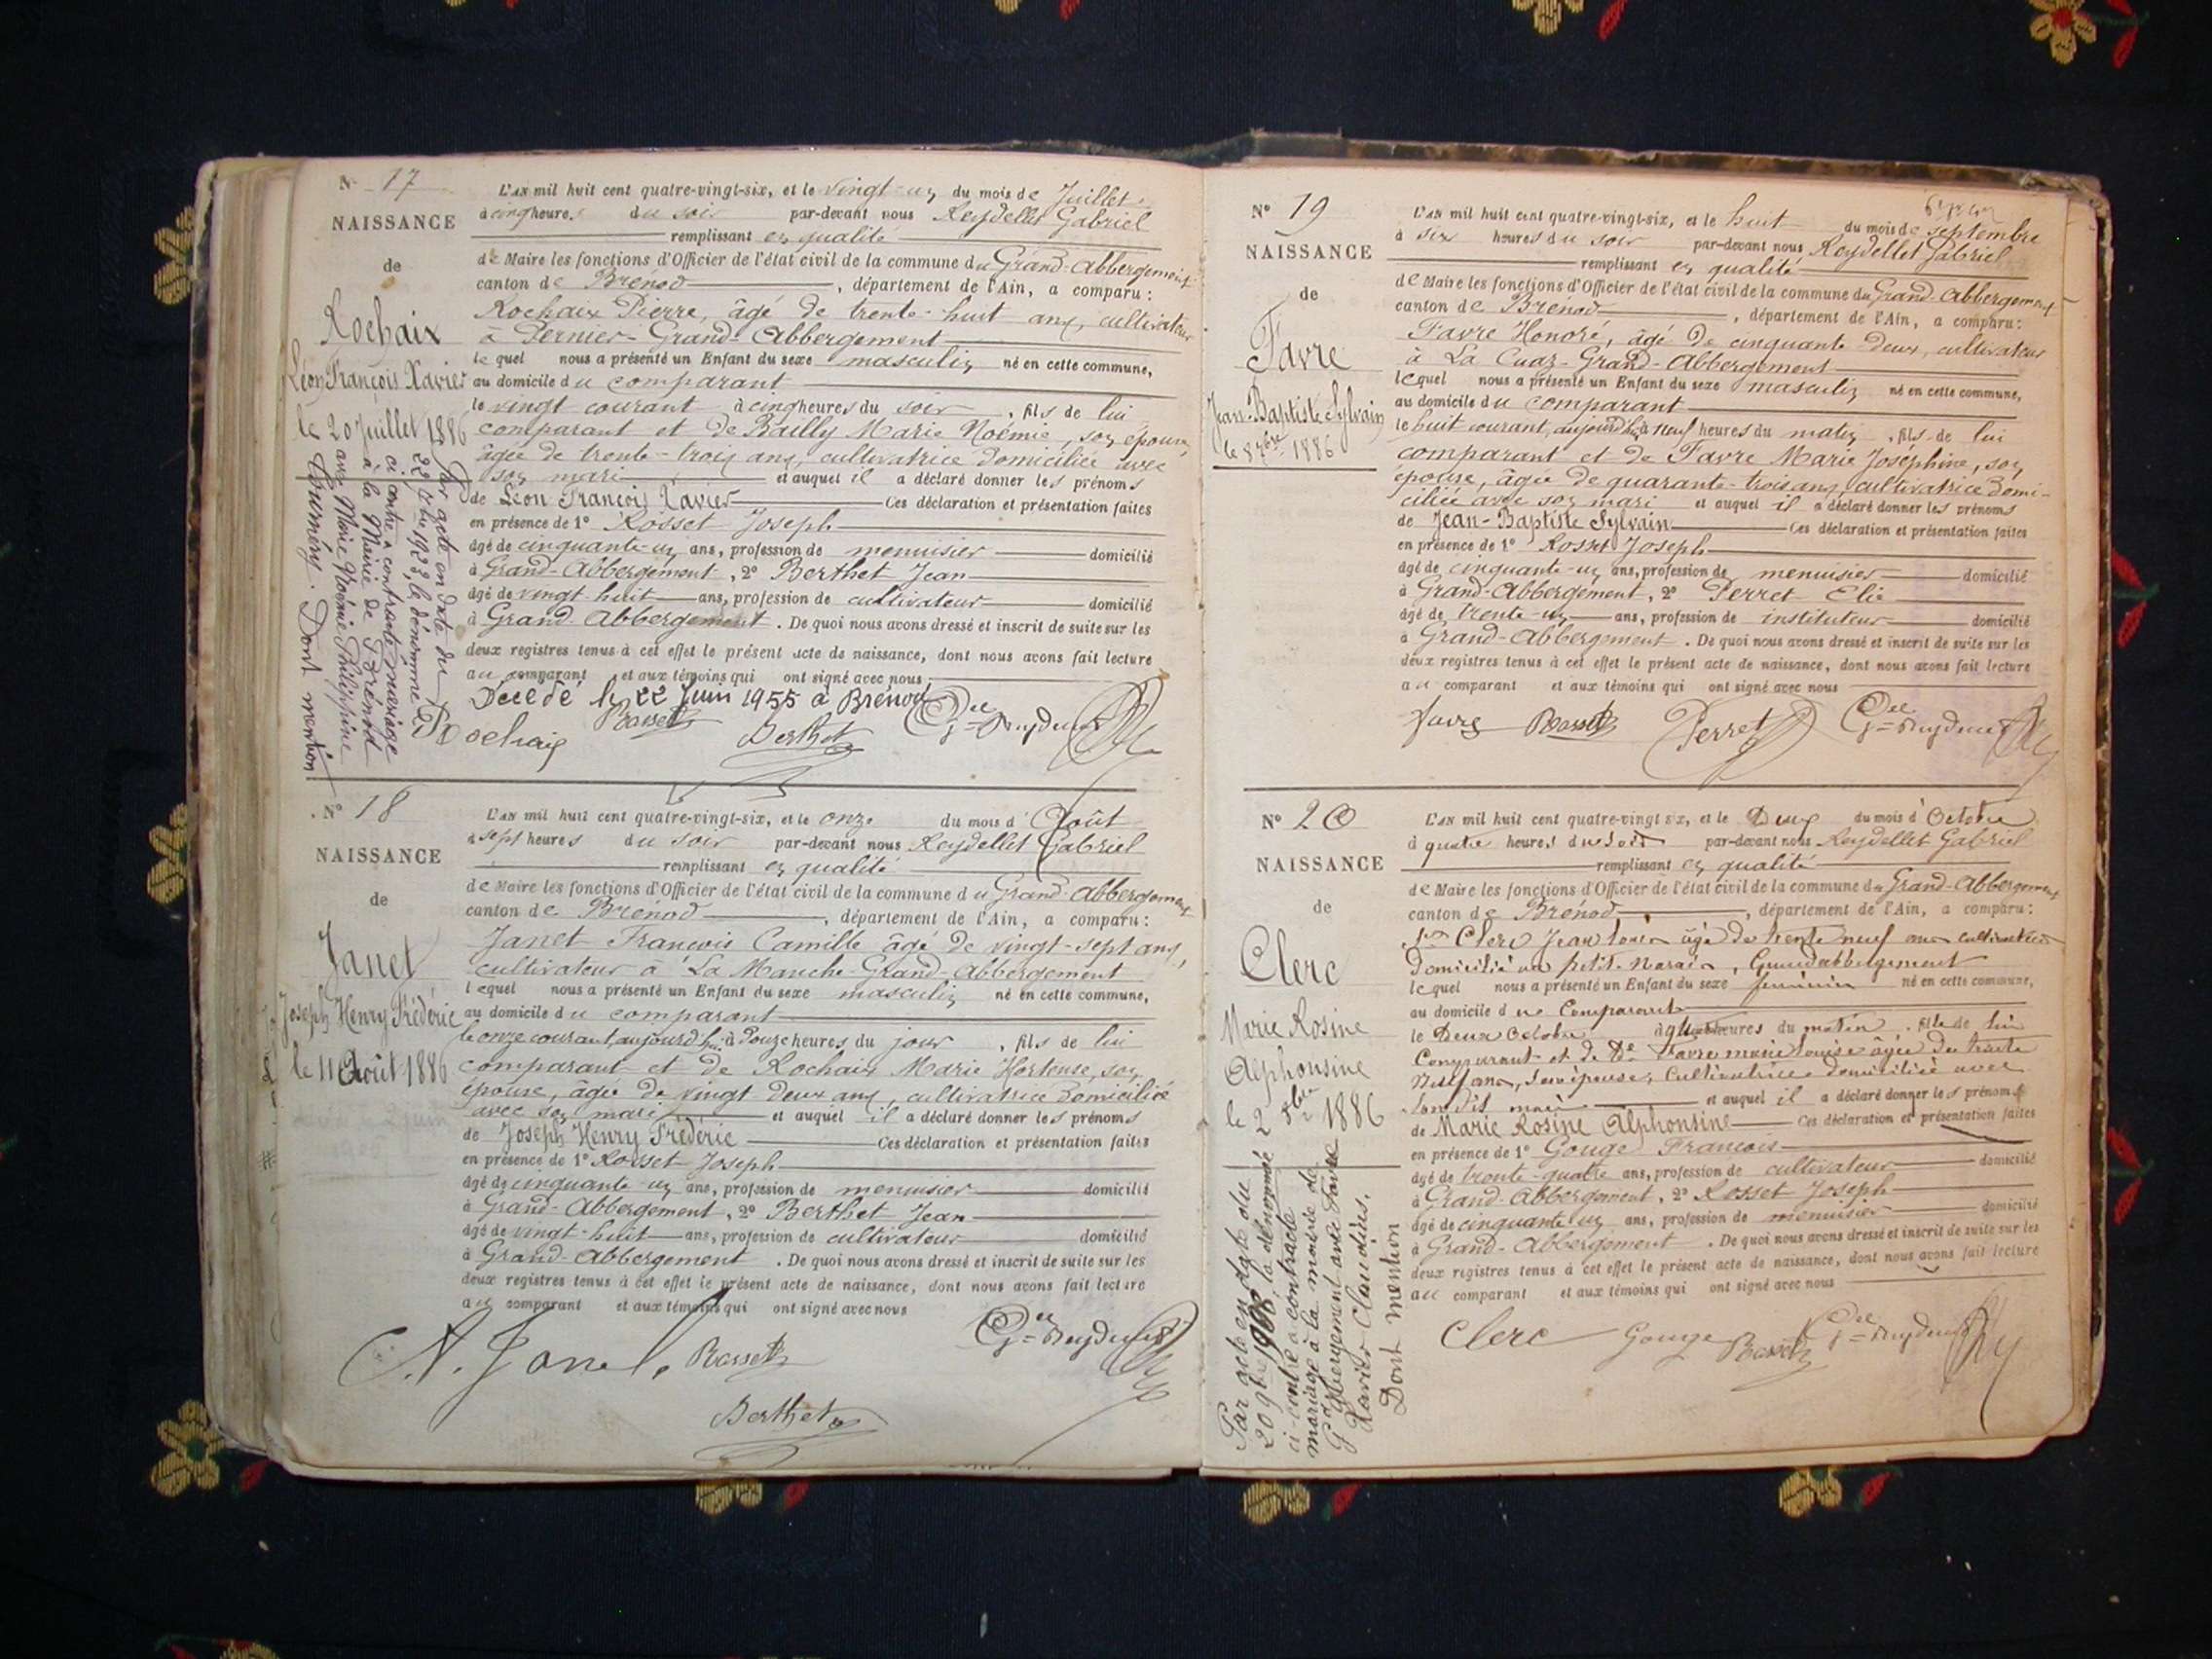 N° 17
NAISSANCE
de
Rochaix
Léon François Xavier
le 20 Juillet 1886
Par acte en date du
22 1923, le dénommé
ci-contre a contracté mariage
à la Mairie de Brénod
avec Marie Noémie Philippine
Dont mention
L'AN mil huit cent quatre-vingt-six, et le vingt-un du mois de Juillet
à cinq heures du soir par-devant nous Reydellet Gabriel
remplissant en qualité
de Maire les fonctions d'Officier de l'état civil de la commune du Grand-Abbergement
canton de Brénod, département de l'Ain, a comparu :
Rochaix Pierre, âgé de trente-huit ans, cultivateur
à Pernier-Grand-Abbergement
lequel nous a présenté un Enfant du sexe masculin né en cette commune,
au domicile du comparant
le vingt courant à cinq heures du soir, fils de lui
comparant et de Bailly Marie Noémie, son épouse
âgée de trente-trois ans, cultivatrice domiciliée avec
son mari et auquel il a déclaré donner les prénoms
de Léon François Xavier Ces déclaration et présentation faites
en présence de 1° Rosset Joseph
âgé de cinquante-un ans, profession de menuisier domicilié
à Grand-Abbergement, 2° Berthet Jean
âgé de vingt-huit ans, profession de cultivateur domicilié
à Grand-Abbergement. De quoi nous avons dressé et inscrit de suite sur les
deux registres tenus à cet effet le présent acte de naissance, dont nous avons fait lecture
au comparant et aux témoins qui ont signé avec nous
Décédé le 22 Juin 1955 à Brénod
Rochaix Rosset Berthet
N° 18
NAISSANCE
de
Janet
Joseph Henry Frédéric
le 11 Août 1886
L'AN mil huit cent quatre-vingt-six, et le onze du mois d'Août
à sept heures du soir par-devant nous Reydellet Gabriel
remplissant en qualité
de Maire les fonctions d'Officier de l'état civil de la commune du Grand-Abbergement
canton de Brénod, département de l'Ain, a comparu :
Janet François Camille âgé de vingt-sept ans,
cultivateur à La Manche-Grand-Abbergement
lequel nous a présenté un Enfant du sexe masculin né en cette commune,
au domicile du comparant
le onze courant, aujourd'hui à douze heures du jour, fils de lui
comparant et de Rochaix Marie Hortense, son
épouse, âgée de vingt-deux ans, cultivatrice domiciliée
avec son mari et auquel il a déclaré donner les prénoms
de Joseph Henry Frédéric Ces déclaration et présentation faites
en présence de 1° Rosset Joseph
âgé de cinquante-un ans, profession de menuisier domicilié
à Grand-Abbergement, 2° Berthet Jean
âgé de vingt-huit ans, profession de cultivateur domicilié
à Grand-Abbergement. De quoi nous avons dressé et inscrit de suite sur les
deux registres tenus à cet effet le présent acte de naissance, dont nous avons fait lecture
au comparant et aux témoins qui ont signé avec nous
Rosset
Berthet
N° 19
NAISSANCE
de
Favre
Jean-Baptiste Sylvain
le 8 7bre 1886
L'AN mil huit cent quatre-vingt-six, et le huit du mois de septembre
à six heures du soir par-devant nous Reydellet Gabriel
remplissant en qualité
de Maire les fonctions d'Officier de l'état civil de la commune du Grand-Abbergement
canton de Brénod, département de l'Ain, a comparu :
Favre Honoré, âgé de cinquante-deux, cultivateur
à La Cuaz-Grand-Abbergement
lequel nous a présenté un Enfant du sexe masculin né en cette commune,
au domicile du comparant
le huit courant, aujourd'hui à neuf heures du matin, fils de lui
comparant et de Favre Marie Joséphine, son
épouse, âgée de quarante-trois ans, cultivatrice domi-
ciliée avec son mari et auquel il a déclaré donner les prénoms
de Jean-Baptiste Sylvain Ces déclaration et présentation faites
en présence de 1° Rosset Joseph
âgé de cinquante-un ans, profession de menuisier domicilié
à Grand-Abbergement, 2° Perret Elie
âgé de trente-un ans, profession de instituteur domicilié
à Grand-Abbergement. De quoi nous avons dressé et inscrit de suite sur les
deux registres tenus à cet effet le présent acte de naissance, dont nous avons fait lecture
au comparant et aux témoins qui ont signé avec nous
Favre Rosset Perret
N° 20
NAISSANCE
de
Clerc
Marie Rosine
Alphonsine
le 2 8bre 1886
Par acte en date du
20 9bre 1908, la dénommée
ci-contre a contracté
mariage à la mairie de
Gd Abbergement avec Favre
Xavier Claudius.
Dont mention
L'AN mil huit cent quatre-vingt six, et le Deux du mois d'Octobre
à quatre heures du soir par-devant nous Reydellet Gabriel
remplissant en qualité
de Maire les fonctions d'Officier de l'état civil de la commune du Grand-Abbergement
canton de Brénod, département de l'Ain, a comparu :
Clerc Jean Louis âgé de trente neuf ans cultivateur
domicilié au petit-Marais, Grandabbergement
lequel nous a présenté un Enfant du sexe féminin né en cette commune,
au domicile du Comparant
le Deux Octobre à quatre heures du matin, fille de lui
Comparant et de De Favre marie Louise âgée de trente
neuf ans, son épouse, Cultivatrice domiciliée avec
son dit mari et auquel il a déclaré donner les prénoms
de Marie Rosine Alphonsine Ces déclaration et présentation faites
en présence de 1° Gouge François
âgé de trente-quatre ans, profession de cultivateur domicilié
à Grand-Abbergement, 2° Rosset Joseph
âgé de cinquante-un ans, profession de menuisier domicilié
à Grand-Abbergement. De quoi nous avons dressé et inscrit de suite sur les
deux registres tenus à cet effet le présent acte de naissance, dont nous avons fait lecture
au comparant et aux témoins qui ont signé avec nous
Clerc Gouge Rosset